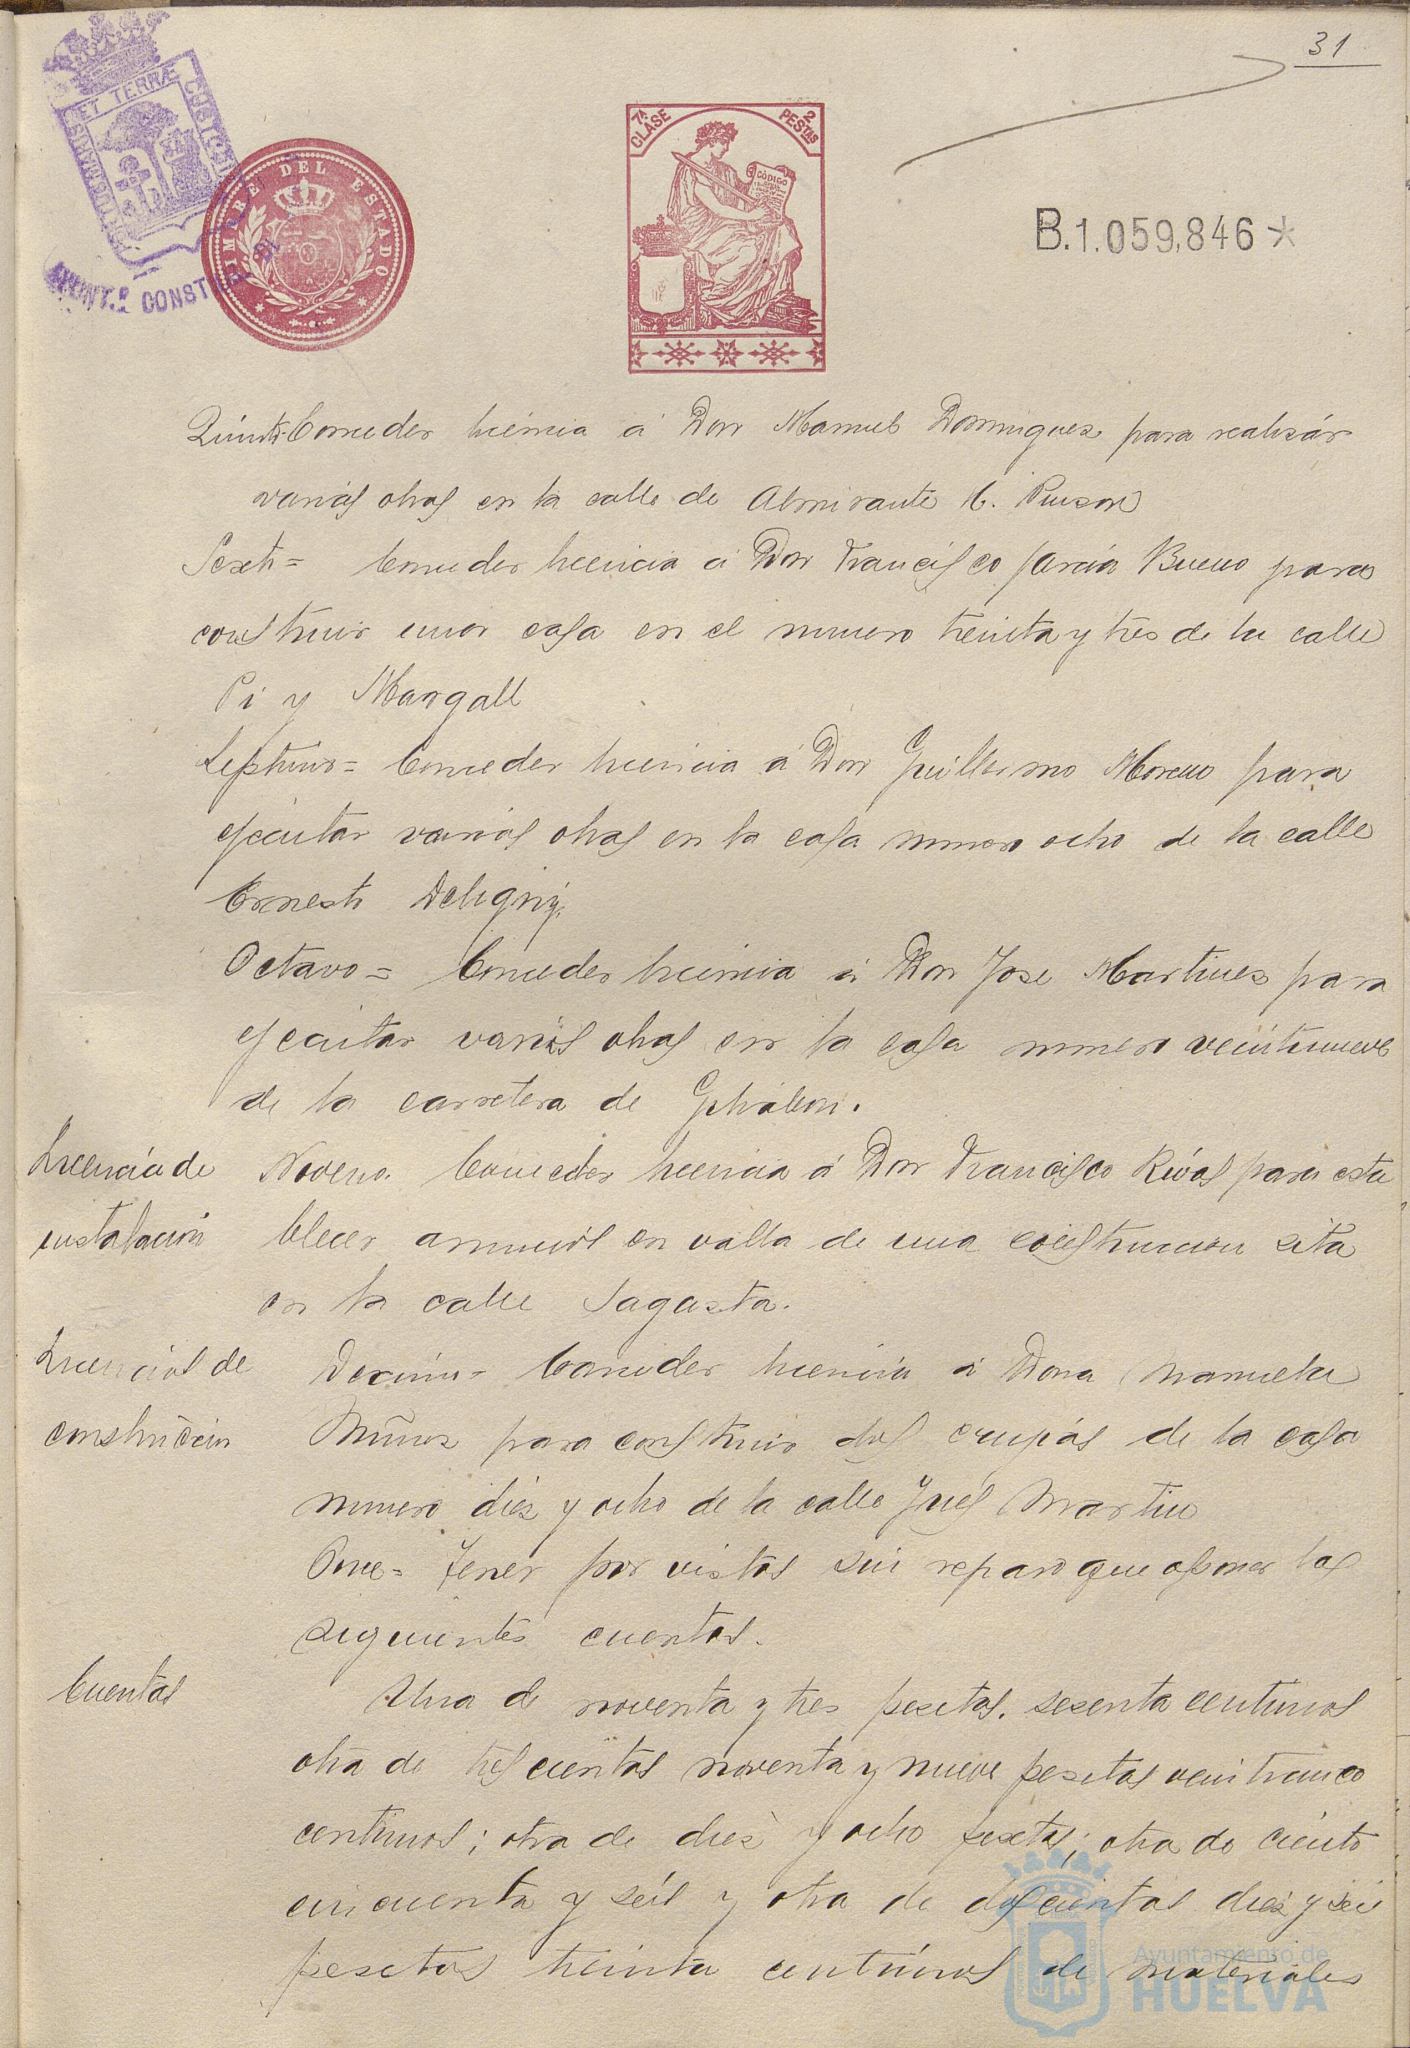 31
PORTUS MARIS ET TERRÆ CUSTODIA
AYUNT.º CONSTNAL
TIMBRE DEL ESTADO
7ª CLASE
2 PESTAS
CODIGO
B.1.059,846*
Quinto- Conceder licencia á Don Manuel Dominguez para realizár
varias obras en la calle de Almirante H. Pinzon
Sexto= Conceder licencia á Don Francisco Garcia Bueno para
construir una casa en el numero treinta y tres de la calle
Pi y Margall
Septimo= Conceder licencia á Don Guillermo Moreno para
ejecutar varias obras en la casa numero ocho de la calle
Ernesto Deligny.
Octavo= Conceder licencia á Don Jose Martinez para
ejecutar varias obras en la casa numero veintinueve
de la carretera de Gibraleon.
Licencia de
instalación
Noveno. Conceder licencia á Don Francisco Rivas para esta
blecer anuncios en valla de una construccion sita
en la calle Sagasta.
Licencias de
construcción
Decimo= Conceder licencia á Dona Manuela
Muñoz para construir dos crujias de la casa
numero diez y ocho de la calle Ynés Martin
Once= Tener por vistas sin reparo que oponer las
siguientes cuentas.
Cuentas
Una de noventa y tres pesetas. sesenta centimos
otra de trescientas noventa y nueve pesetas veinticinco
centimos; otra de diez y ocho pesetas; otra de ciento
cincuenta y seis y otra de doscientas diez y seis
pesetas treinta centimos de materiales
Ayuntamiento de
HUELVA